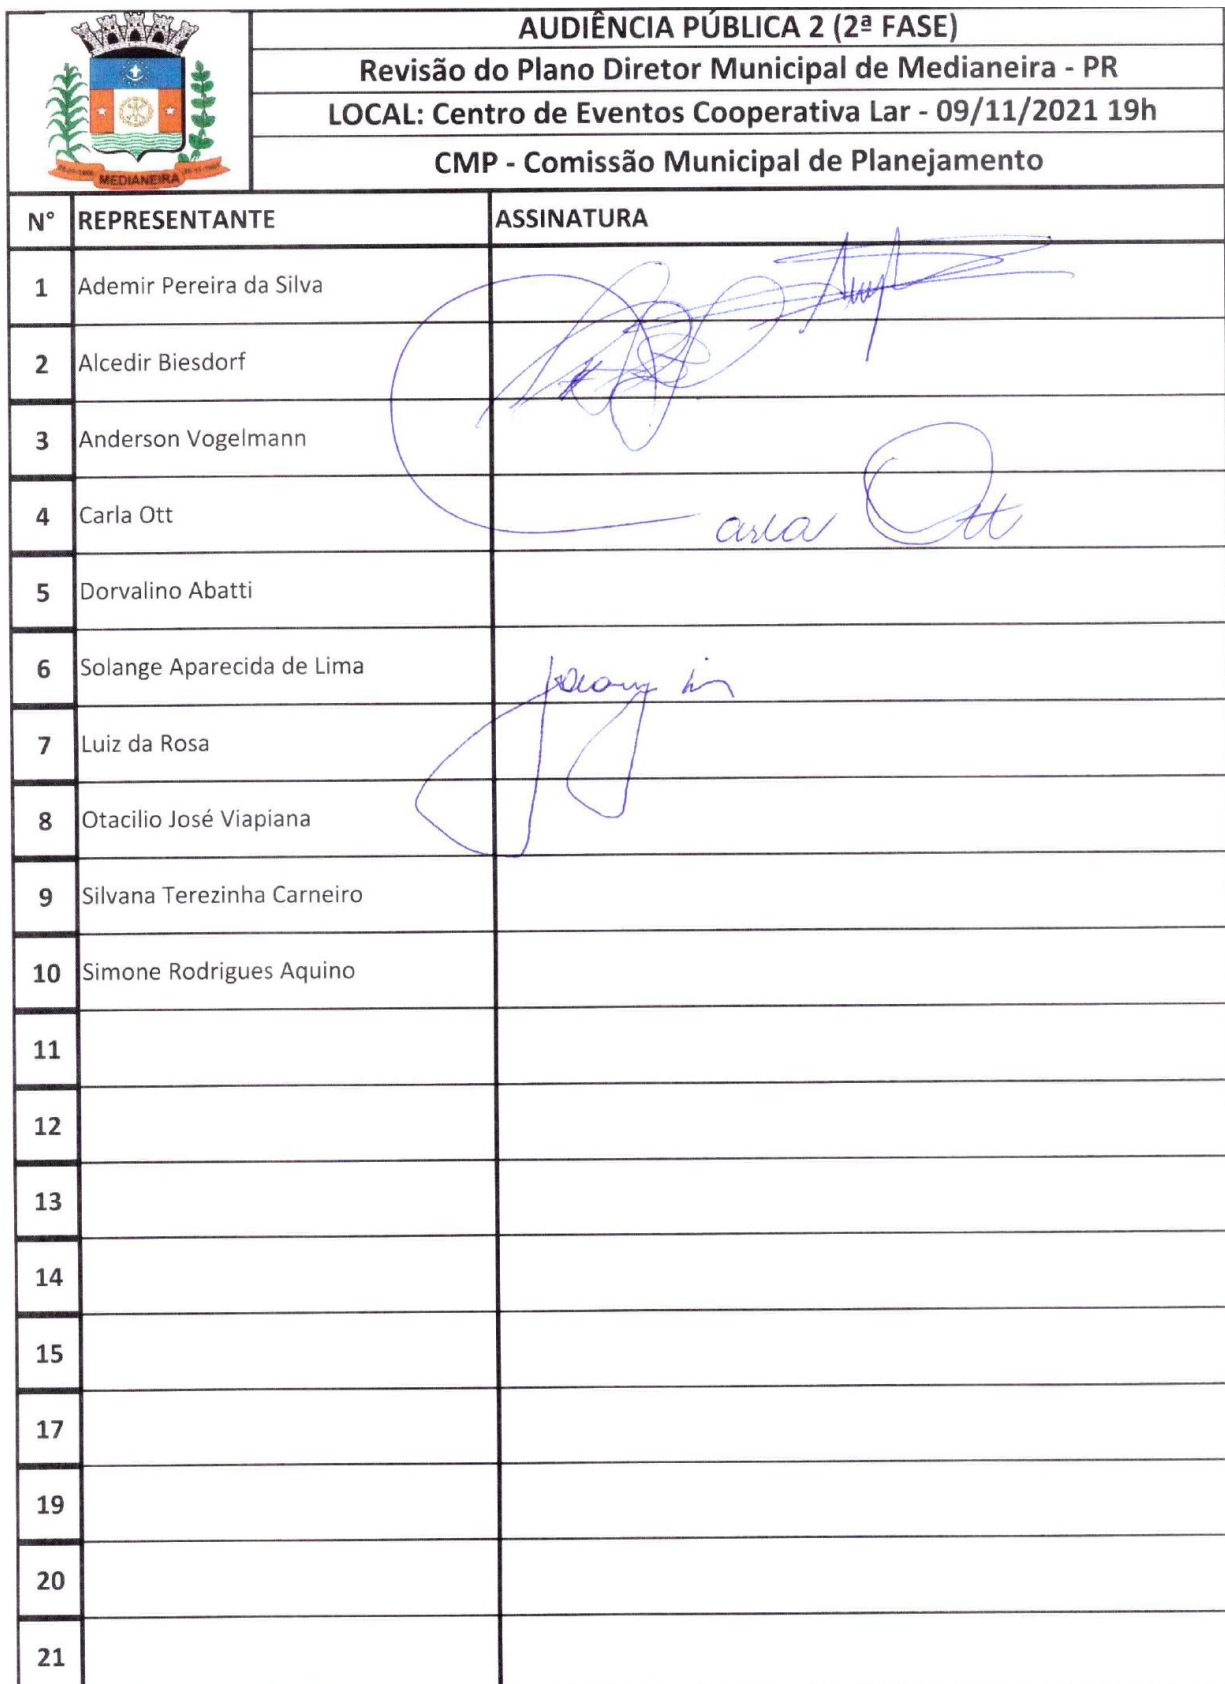 AUDIÊNCIA PÚBLICA 2 (2ª FASE)
Revisão do Plano Diretor Municipal de Medianeira - PR
LOCAL: Centro de Eventos Cooperativa Lar - 09/11/2021 19h
CMP - Comissão Municipal de Planejamento
MEDIANEIRA
N° REPRESENTANTE ASSINATURA
1 Ademir Pereira da Silva
2 Alcedir Biesdorf
3 Anderson Vogelmann
4 Carla Ott Carla Ott
5 Dorvalino Abatti
6 Solange Aparecida de Lima
7 Luiz da Rosa
8 Otacilio José Viapiana
9 Silvana Terezinha Carneiro
10 Simone Rodrigues Aquino
11
12
13
14
15
17
19
20
21